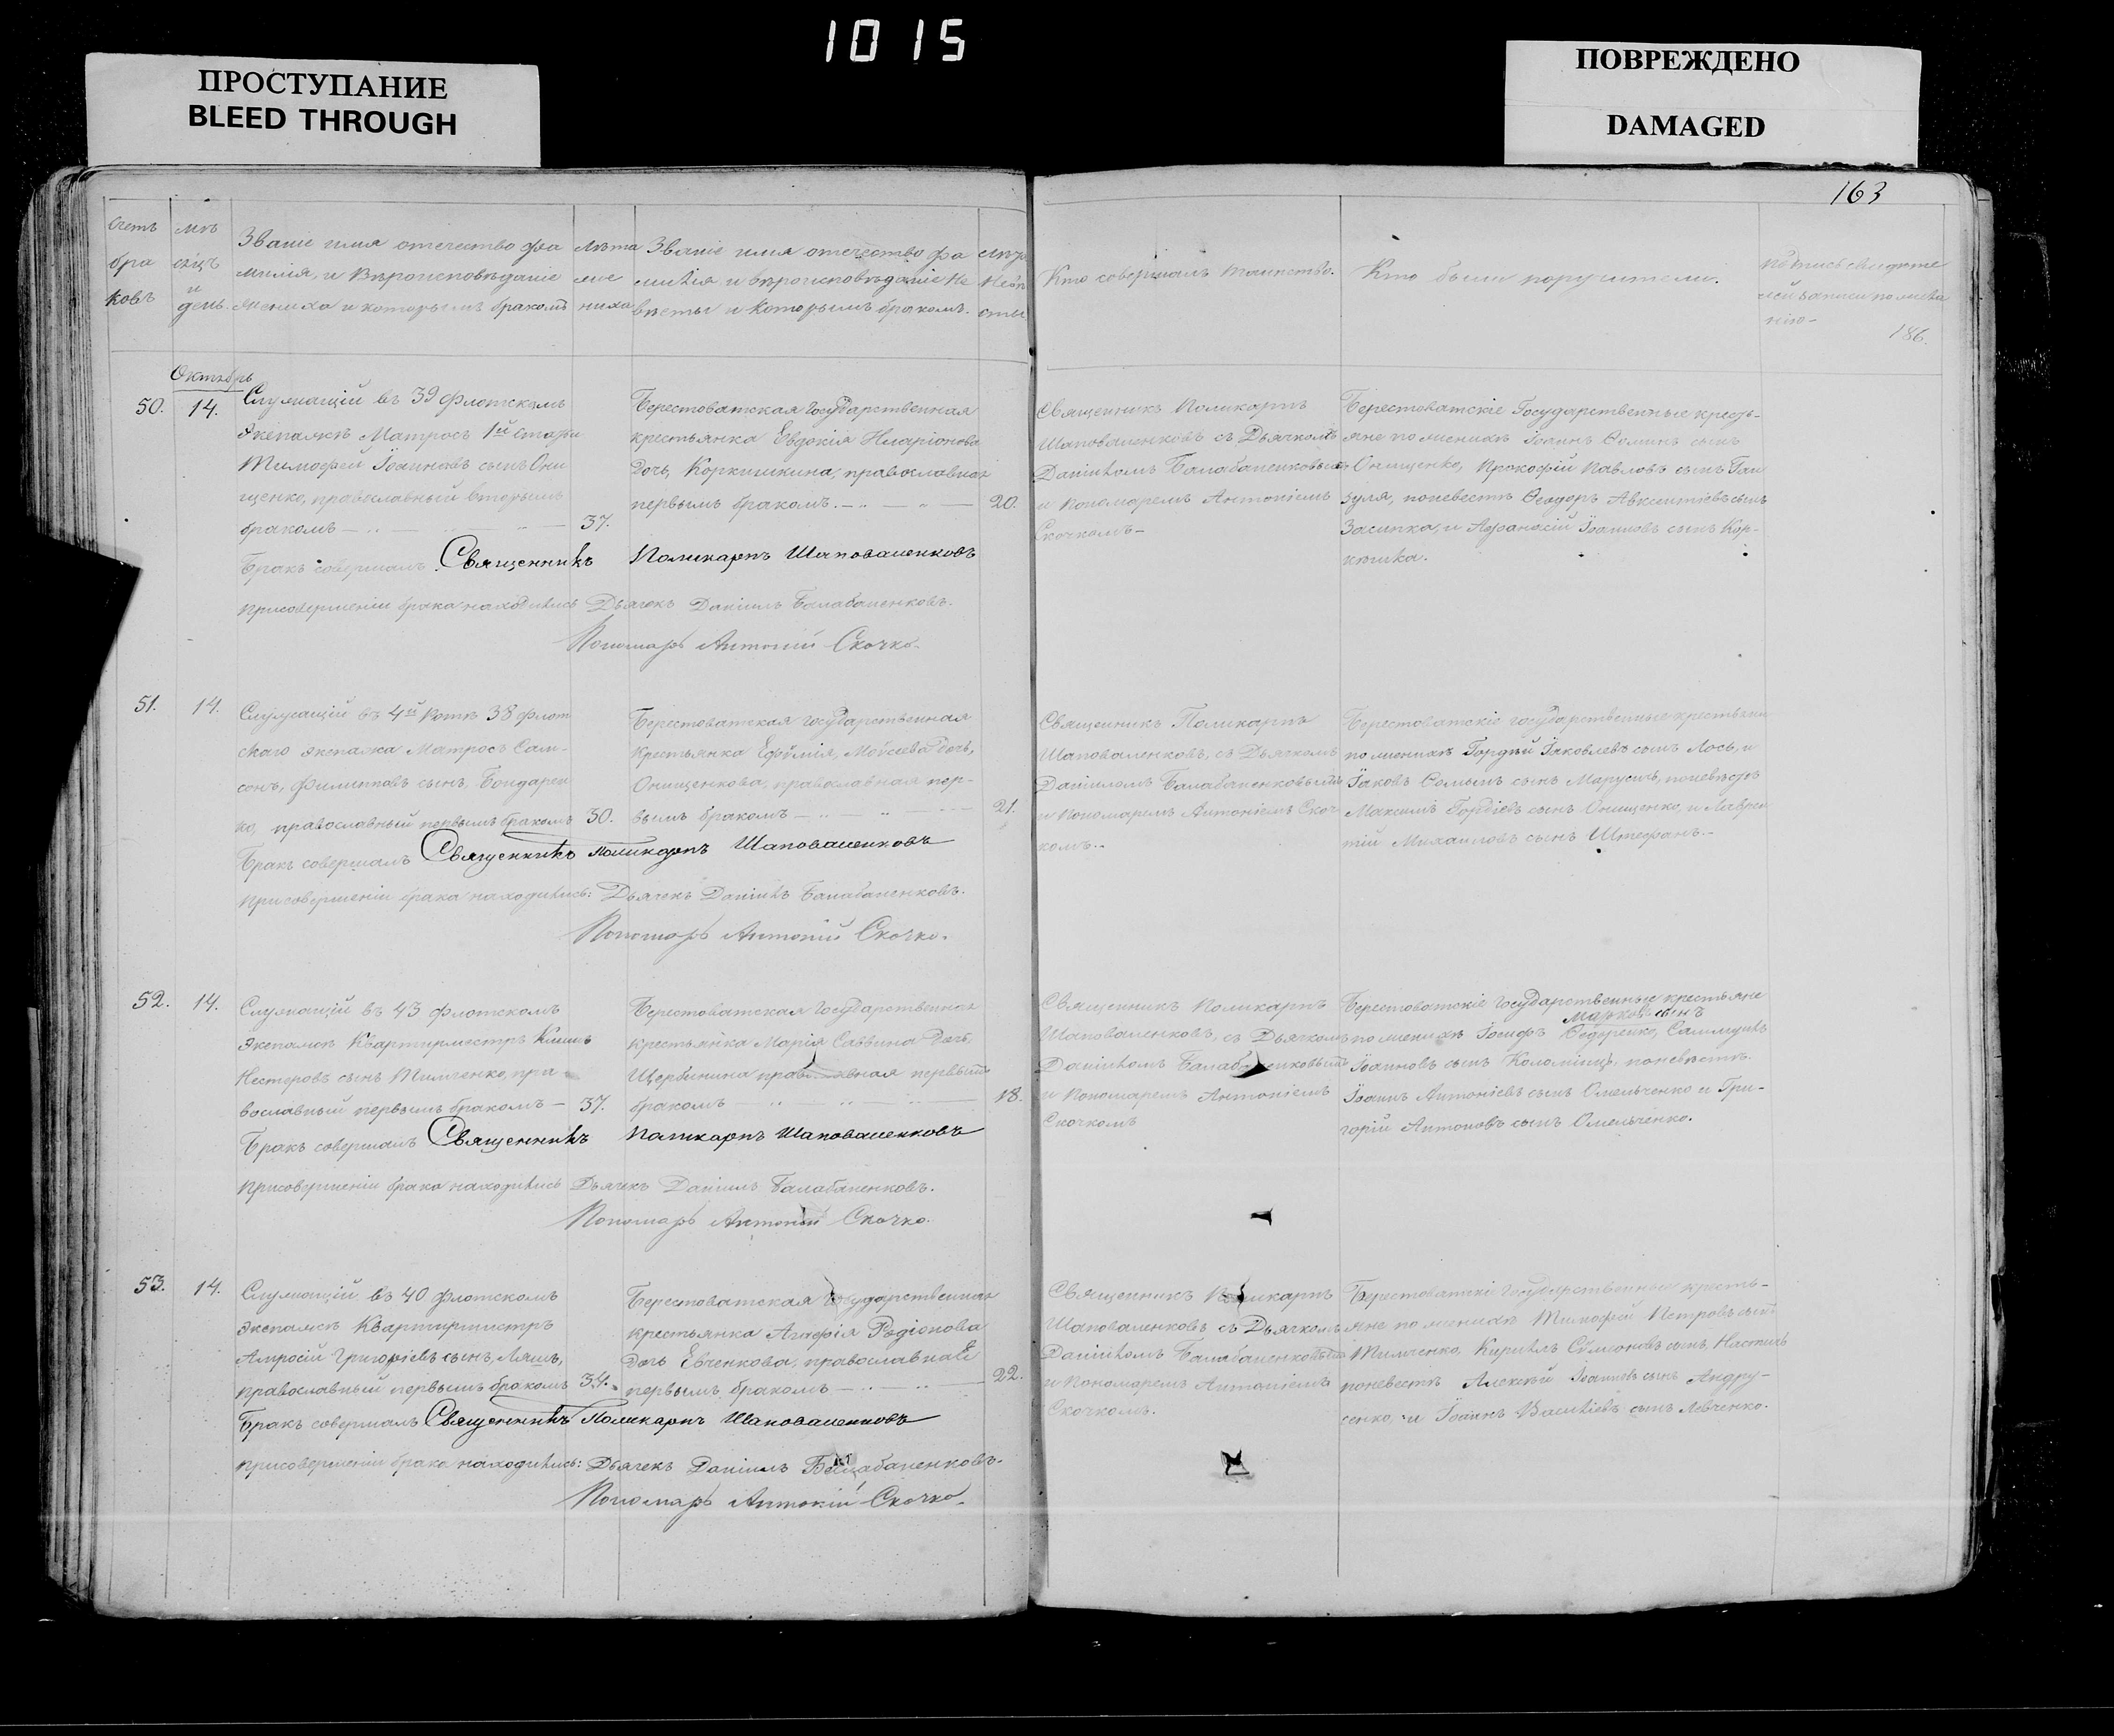 1015
ПРОСТУПАНИЕ
BLEED THROUGH
ПОВРЕЖДЕНО
DAMAGED
163
Счетъ бра ковъ
мѣ сяцъ и день.
Званіе имя отечество фа
милія, и Вѣроисповѣданіе
жениха и которымъ бракомъ
лѣта же ниха
Званіе имя отечество фа
милія и вѣроисповѣданіе не
вѣсты и которымъ бракомъ.
Кто совершалъ таинство.
Кто были поручители.
186.
Октябрь
50.
14.
Служащій въ 39 Флотскомъ
Экепажѣ Матросъ 1й статьи
Тимофей Іоанновъ сынъ Они
щенко, православный вторымъ
бракомъ
37.
Берестоватская Государственная
крестьянка Евдокія Иларіонова
дочь, Коркишкина, православная
первымъ бракомъ.
20.
Священникъ Поликарпъ
Шаповаленковъ съ Дьячкомъ
Даніиломъ Балабаненковымъ
и Пономаремъ Антоніемъ
Скочкомъ
Берестоватскіе Государственные кресть-
яне по женихѣ Іоаннъ Ѳоминъ сынъ
Онищенко, Прокофій Павловъ сынъ Ган
зуля, поневестѣ Ѳеодоръ Авксентіевъ сынъ
Засипка, и Афанасій Іоанновъ сынъ Кор-
кишка.
Бракъ совершалъ Священникъ Поликарпъ Шаповаленковъ
присовершеніи брака находились Дьячекъ Даніилъ Балабаненковъ.
Пономарь Антоній Скочко.
51.
14.
Служащій въ 4й ротѣ 38 флот
скаго экепажа Матросъ Сам-
сонъ, Филиповъ сынъ, Бондарен
ко, православный первымъ бракомъ
30.
Берестоватская государственная
крестьянка Ефимія, Мойсеева дочь,
Онищенкова, православная пер-
вымъ бракомъ
21.
Священникъ Поликарпъ
Шаповаленковъ, съ Дьячкомъ
Даніиломъ Балабаненковымъ
и Пономаремъ Антоніемъ Скоч
комъ.
Берестоватскіе государственные крестьяне
по женихѣ Гордѣй Іяковлевъ сынъ Лось, и
Іаковъ Ѳоминъ сынъ Марусикъ, поневѣстѣ
Максимъ Гордіевъ сынъ Онищенко, и Лаврен
тій Михаиловъ сынъ Штефанъ.
Бракъ совершалъ Священникъ Поликарпъ Шаповаленковъ
присовершеніи брака находились: Дьячекъ Даніилъ Балабаненковъ.
Пономарь Антоній Скочко.
52.
14.
Служащій въ 43 флотскомъ
экепажѣ Квартирместръ Климъ
Нестеровъ сынъ Тимченко, пра-
вославный первымъ бракомъ
37.
Берестоватская Государственная
крестьянка Марія Саввина дочь,
Щербинина православная первымъ
бракомъ
18.
Священникъ Поликарпъ
Шаповаленковъ, съ Дьячкомъ
Даніиломъ Балабаненковымъ
и Пономаремъ Антоніемъ
Скочкомъ
Берестоватскіе Государственные крестьяне
Марковъ сынъ
по женихѣ Іосифъ Ѳедоренко, Самуилъ
Іоанновъ сынъ Коломіецъ, поневѣстѣ
Іоаннъ Антоніевъ сынъ Омельченко и Гри-
горій Антоновъ сынъ Омельченко.
Бракъ совершалъ Священникъ Поликарпъ Шаповаленковъ
присовершеніи брака находились Дьячекъ Даніилъ Балабаненковъ.
Пономарь Антоній Скочко.
53.
14.
Служащій въ 40 флотскомъ
экепажѣ Квартирмистръ
Амросій Григоріевъ сынъ, Ляшъ,
православный первымъ бракомъ
34.
Берестоватская Государственная
крестьянка Агафія Родіонова
дочь Евченкова, православная
первымъ бракомъ
22.
Священникъ Поликарпъ
Шаповаленковъ съ Дьячкомъ
Даніиломъ Балабаненковымъ
и Пономаремъ Антоніемъ
Скочкомъ.
Берестоватскіе Государственные кресть-
яне по женихѣ Тимофей Петровъ сынъ
Тимченко, Кирилъ Сѵмеоновъ сынъ,
поневестѣ Алексѣй Іоанновъ сынъ Андру-
сенко, и Іоаннъ Василіевъ сынъ Левченко.
Бракъ совершалъ Священникъ Поликарпъ Шаповаленковъ
присовершеніи брака находились: Дьячекъ Даніилъ Балабаненковъ.
Пономарь Антоній Скочко.